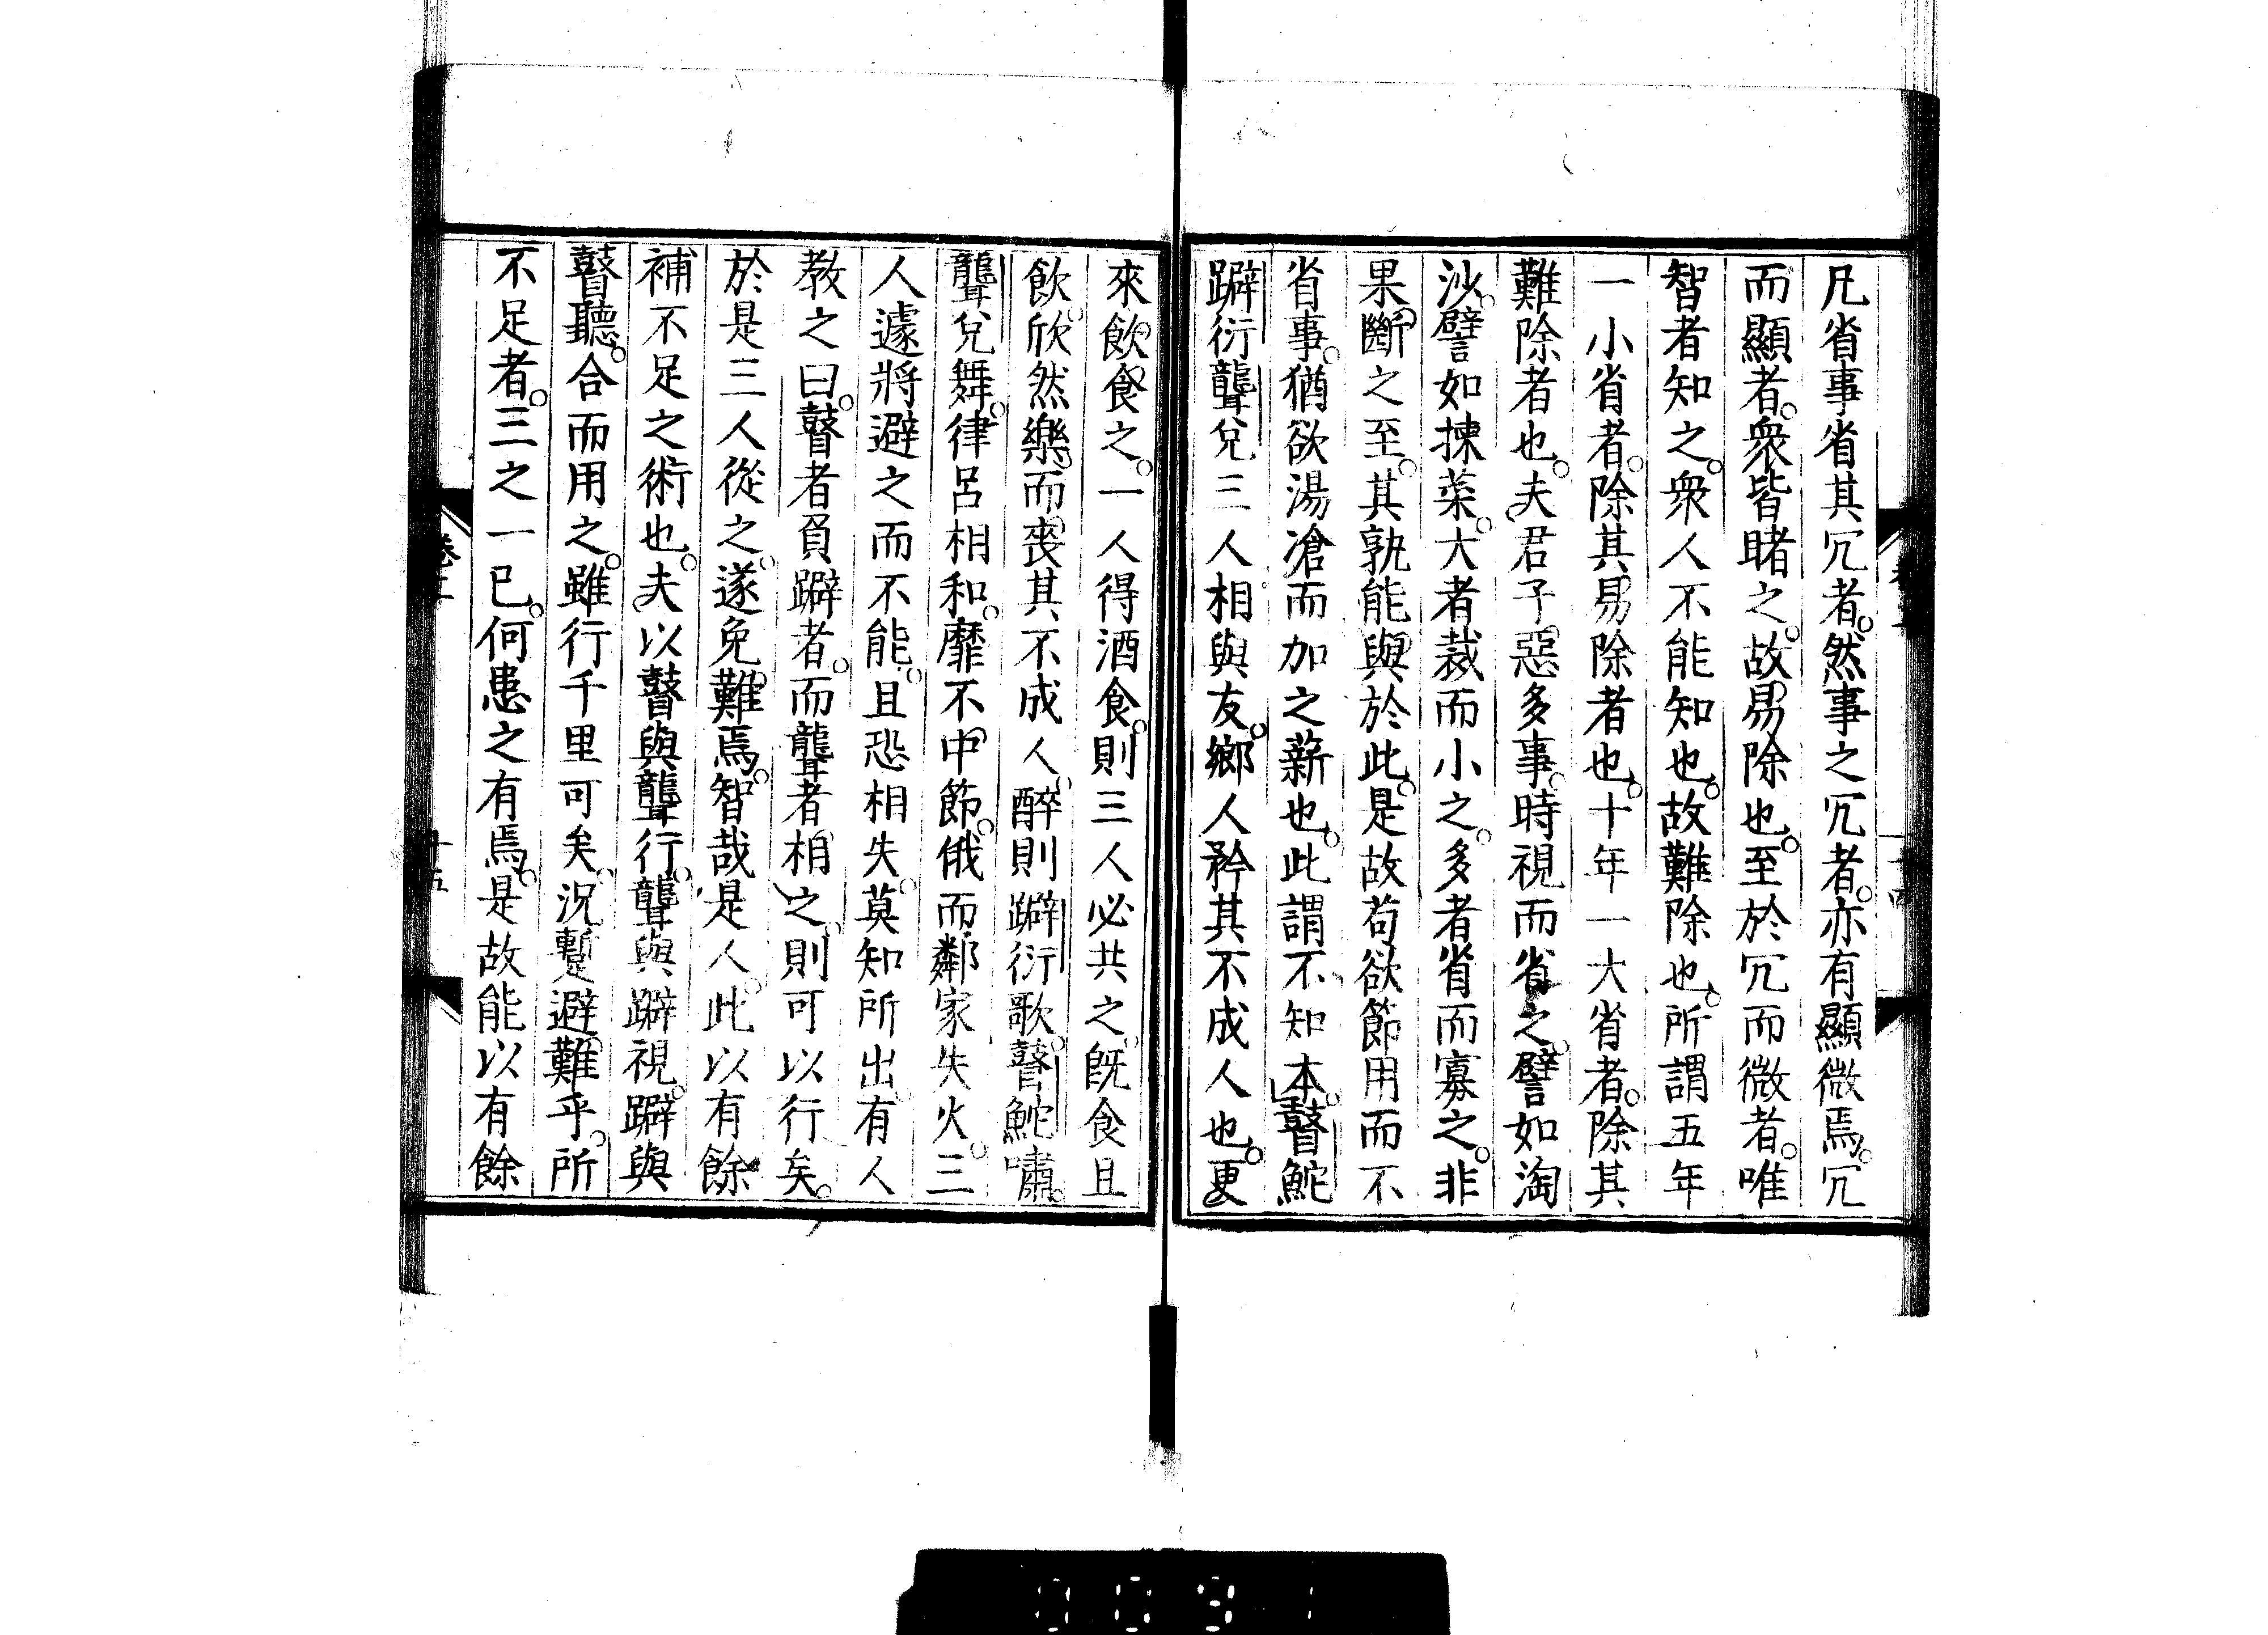 凡省事省其冗者。然事之冗者。亦有顯微焉。冗
而顯者。衆皆睹之。故易除也。至於冗而微者。唯
智者知之。衆人不能知也。故難除也。所謂五年
一小省者。除其易除者也。十年一大省者。除其
難除者也。夫君子惡多事。時視而省之。譬如淘
沙。譬如揀菜。大者裁而小之。多者省而寡之。非
果斷之至。其孰能與於此。是故苟欲節用而不
省事。猶欲湯滄而加之薪也。此謂不知本。瞽鮀
躃衍聾兌三人相與友。鄉人矜其不成人也。更
來飲食之。一人得酒食。則三人必共之。既食且
飲。欣然樂。而喪其不成人。醉則躃衍歌。瞽鮀嘯。
聾兌舞。律呂相和。靡不中節。俄而鄰家失火。三
人遽將避之而不能。且恐相失。莫知所出。有人
教之曰。瞽者負躃者。而聾者相之。則可以行矣。
於是三人從之。遂免難焉。智哉是人。此以有餘
補不足之術也。夫以瞽與聾行。聾與躃視。躃與
瞽聽。合而用之。雖行千里可矣。況蹔避難乎。所
不足者。三之一已。何患之有焉。是故能以有餘
十五
0091